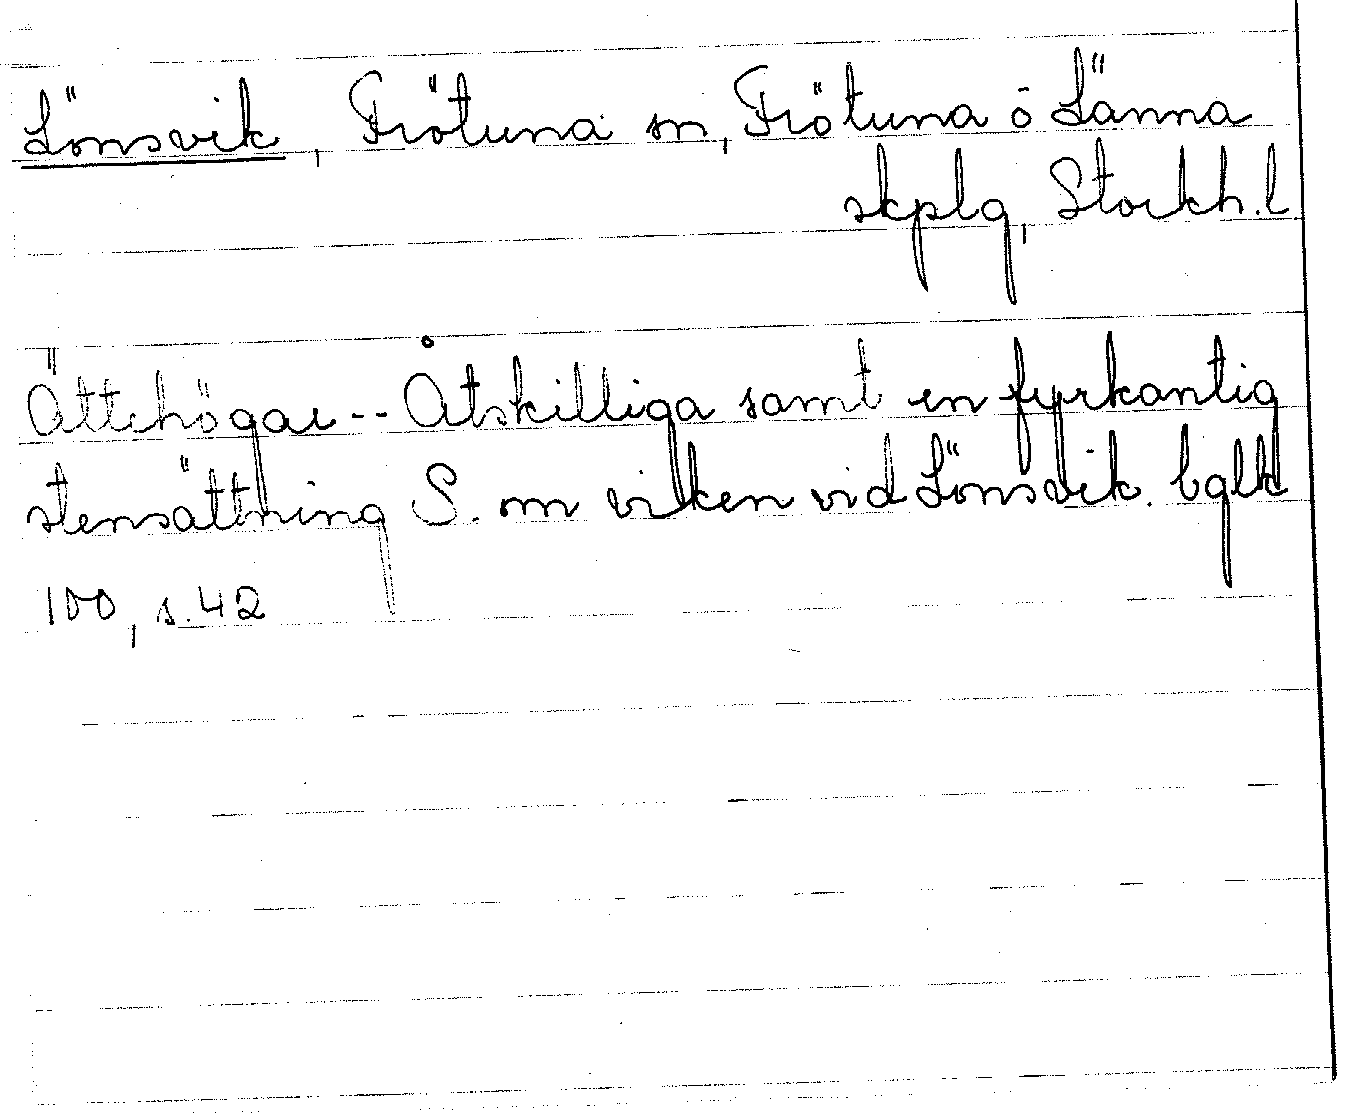 Lönsvik, Frötuna sn, Frötuna ö Länna
skplg, Stockh.l
Ättehögar -- Åtskilliga samt en fyrkantig
stensättning S. om viken vid Lönsvik. bglk
100, s.42